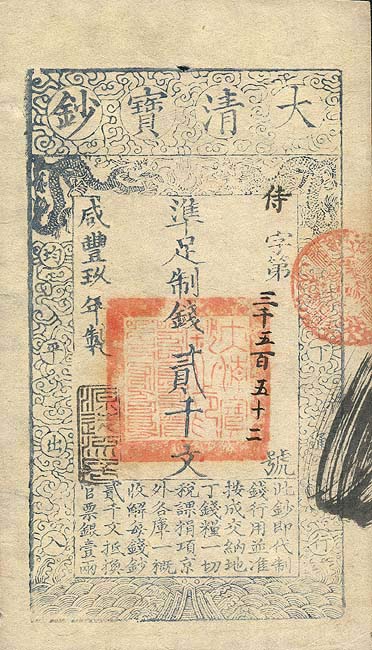 大清寶鈔
侍字第三千五百五十二號
準足制錢貳千文
咸豐玖年製
下
行
均平出入
源遠流長
此鈔即代制
錢行用並准
按成交納地
丁錢糧一切
稅課捐項京
外各庫一概
收解每錢鈔
貳千文抵換
官票銀壹兩